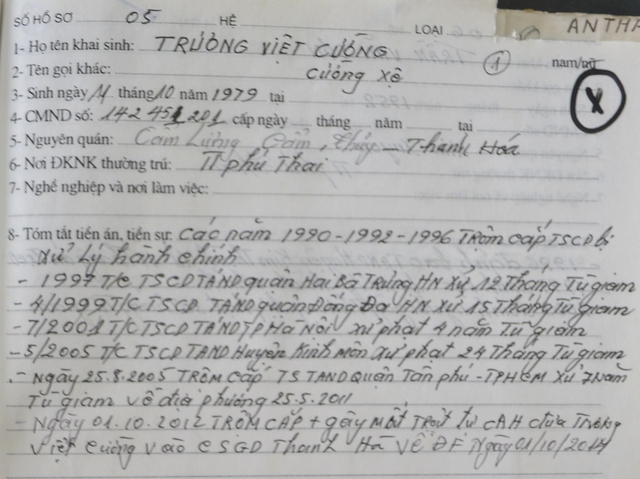 SỐ HỒ SƠ 05 HỆ LOẠI ANTHA
1- Họ tên khai sinh: TRƯƠNG VIỆT CƯỜNG 1 nam/nữ
2- Tên gọi khác: Cường Xệ X
3- Sinh ngày 11 tháng 10 năm 1979 tại
4- CMND số: 142451201 cấp ngày tháng năm tại
5- Nguyên quán: Cẩm Lương, Cẩm Thủy - Thanh Hóa
6- Nơi ĐKNK thường trú: TT phú Thai
7- Nghề nghiệp và nơi làm việc:
8- Tóm tắt tiền án, tiền sự: Các năm 1990-1992-1996 Trộm cắp TSCD bị
xử Lý hành chính
- 1997 T/C TSCD TAND quận Hai Bà Trưng HN xử 12 Tháng Tù giam
- 4/1999 T/C TSCD TAND quận Đống Đa HN xử 15 Tháng Tù giam
- 7/2001 T/C TSCD TAND TP Hà Nội xử phạt 4 năm Tù giam
- 5/2005 T/C TSCD TAND Huyện Kinh môn xử phạt 24 Tháng Tù giam
- Ngày 25.8.2005 Trộm Cắp TS TAND Quận Tân phú - TPHCM xử 7 Năm
Tù giam về địa phương 25.5.2011
- Ngày 01.10.2012 TRỘM CẮP + gây mất Trật tự CAH đưa Trương
Việt Cường vào CSGD Thanh Hà Về ĐF Ngày 01/10/2014